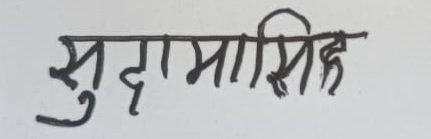 सुदामासिंह